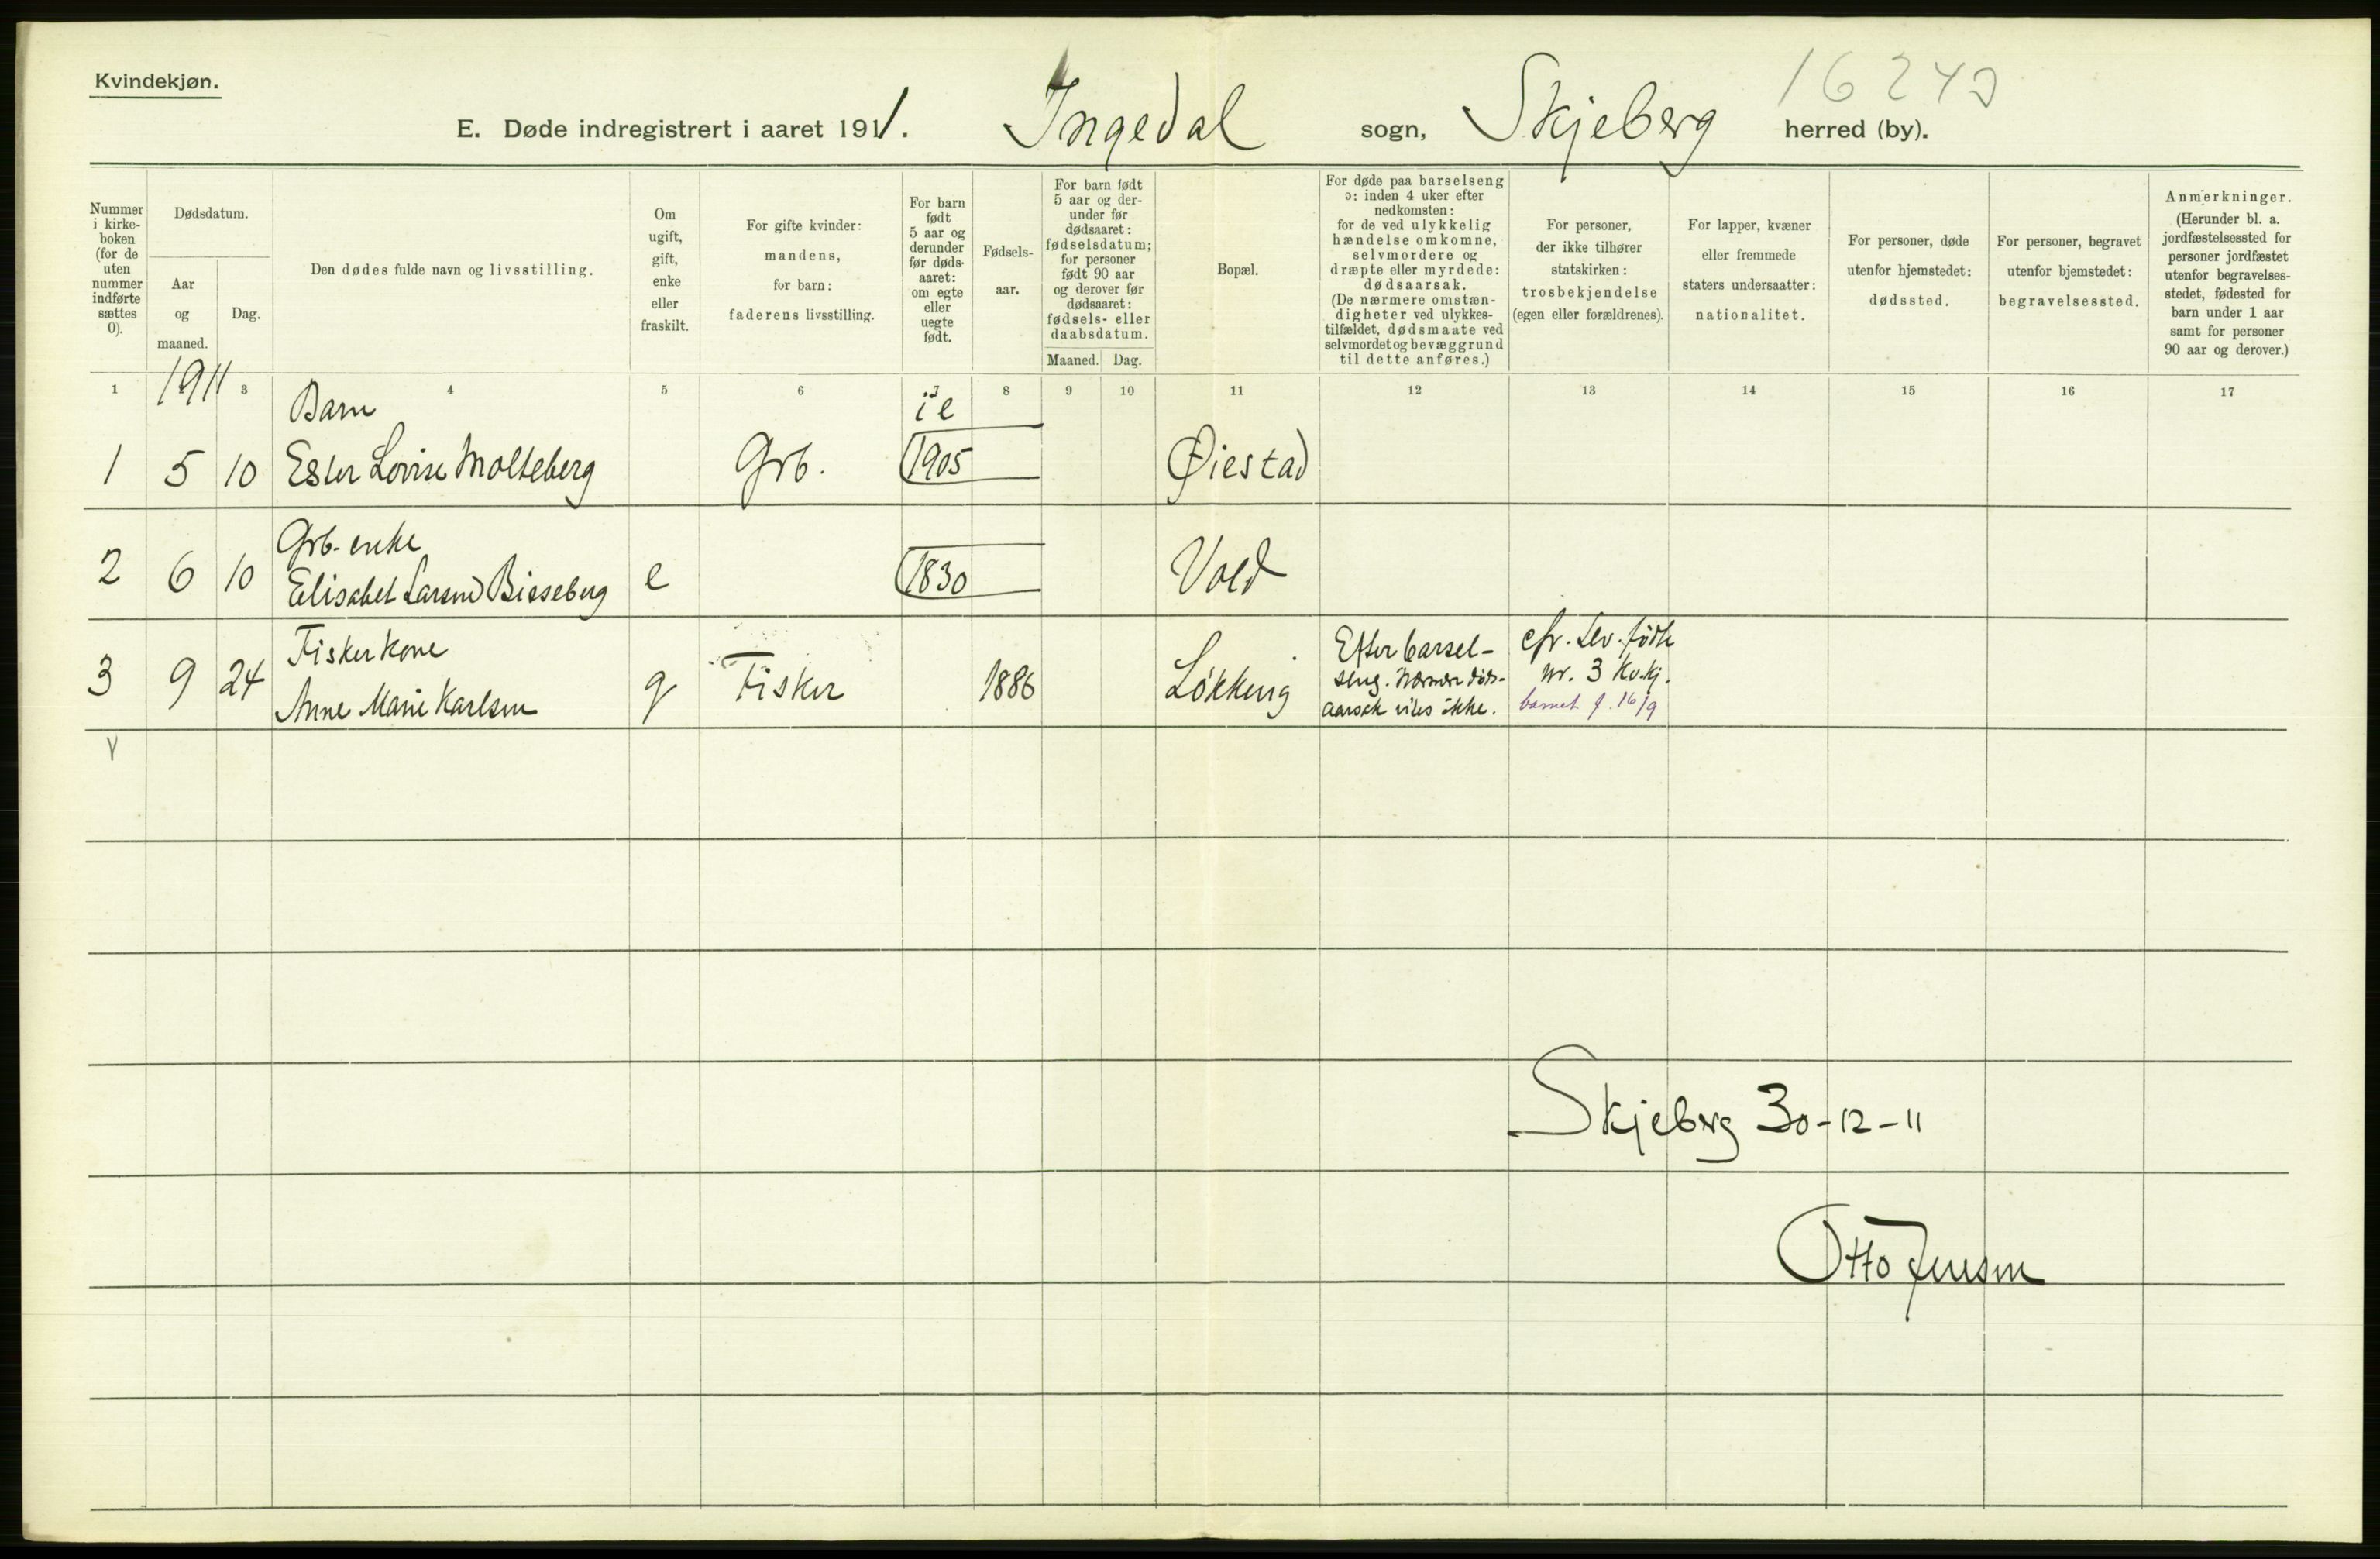 Kvindekjøn.
16243
E. Døde indregistrert i aaret 1911. Ingedal sogn, Skjeberg herred (by).
Nummer
i kirke-
boken
(for de
uten
nummer
indførte
sættes
0).
Dødsdatum.
Aar
og
maaned.
Dag.
Den dødes fulde navn og livsstilling.
Om
ugift,
gift,
enke
eller
fraskilt.
For gifte kvinder:
mandens,
for barn:
faderens livsstilling.
For barn
født
5 aar og
derunder
før døds-
aaret:
om egte
eller
uegte
født.
Fødsels-
aar.
For barn født
5 aar og der-
under før
dødsaaret:
fødselsdatum;
for personer
født 90 aar
og derover før
dødsaaret:
fødsels- eller
daabsdatum.
Maaned. Dag.
Bopæl.
For døde paa barselseng
ɔ: inden 4 uker efter
nedkomsten:
for de ved ulykkelig
hændelse omkomne,
selvmordere og
dræpte eller myrdede:
dødsaarsak.
(De nærmere omstæn-
digheter ved ulykkes-
tilfældet, dødsmaate ved
selvmordet og bevæggrund
til dette anføres.)
For personer,
der ikke tilhører
statskirken:
trosbekjendelse
(egen eller forældrenes).
For lapper, kvæner
eller fremmede
staters undersaatter:
nationalitet.
For personer, døde
utenfor hjemstedet:
dødssted.
For personer, begravet
utenfor bjemstedet:
begravelsessted.
Anmerkninger.
(Herunder bl. a.
jordfæstelsessted for
personer jordfæstet
utenfor begravelses-
stedet, fødested for
barn under 1 aar
samt for personer
90 aar og derover.)
1 3 4 5 6 7 8 9 10 11 12 13 14 15 16 17
1911
Barn
1 5 10 Ester Lovise Molteberg Grb. 1905 Øiestad
Grb. enke
2 6 10 Elisabet Larsen Bisseberg e 1830 Vold
Fiskerkone
3 9 24 Anne Marie Karlsen g Fisker 1886 Løkkeng
Efter barsel-
seng. Nærmere døds-
aarsak vites ikke.
cfr. Lev. fødte
nr. 3 Kv.kj.
barnet f. 16/9
Skjeberg 30-12-11
Otto Jensen